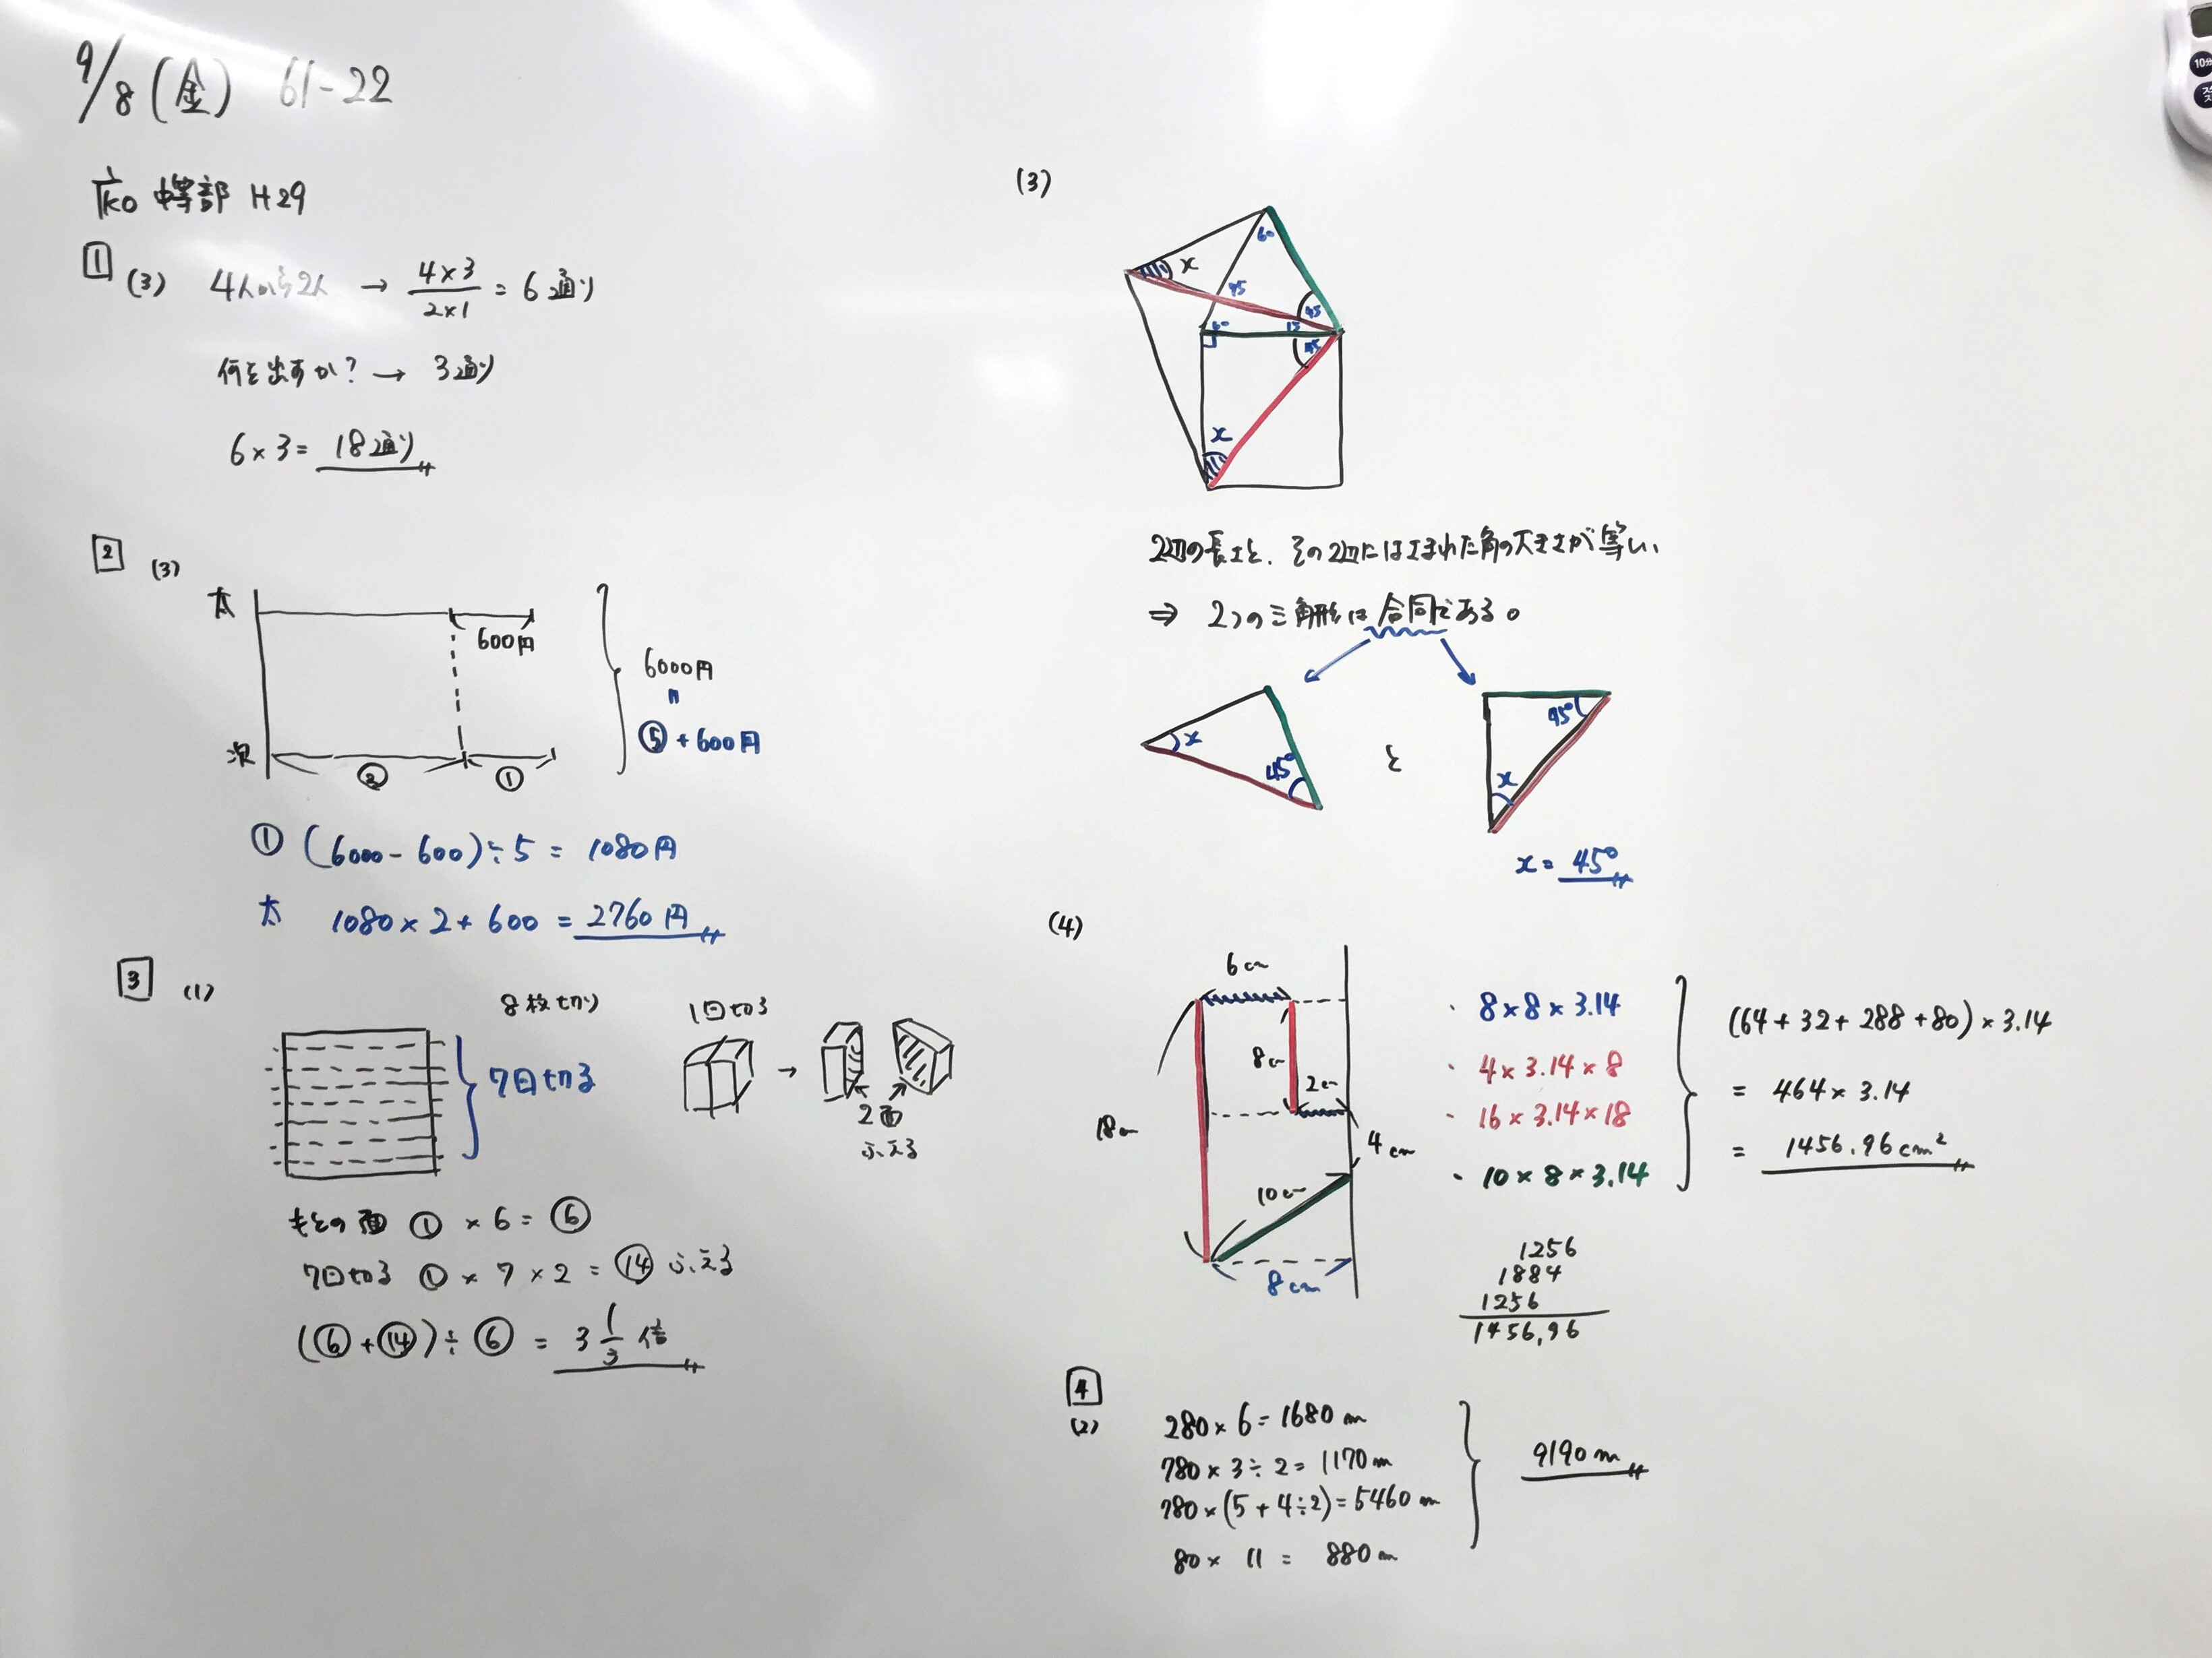 9/8(金) 61-22
KO 中等部 H29
1
(3) 4人から2人 → 4×3/2×1 = 6通り
何を出すか? → 3通り
6×3= 18通り
2
(3)
太
600円
次
② ①
6000円
"
⑤+600円
① (6000-600)÷5= 1080円
太 1080×2+600=2760円
3
(1)
8枚切り
7回切る
1回切る
→
2面
ふえる
もとの面 ①×6=⑥
7回切る ①×7×2=⑭ ふえる
(⑥+⑭)÷⑥ = 3 1/3 倍
(3)
60
x
45
45
60 15
45
x
2辺の長さと、その2辺にはさまれた角の大きさが等しい、
⇒ 2つの三角形は合同である。
x
45°
と
45°
x
x=45°
(4)
6cm
8cm
2cm
18cm
4cm
10cm
8cm
・8×8×3.14
・4×3.14×8
・16×3.14×18
・10×8×3.14
(64+32+288+80)×3.14
= 464×3.14
= 1456.96cm²
1256
1884
1256
1456.96
4
(2)
280×6=1680m
780×3÷2=1170m
780×(5+4÷2)=5460m
80×11= 880m
9190m
10分